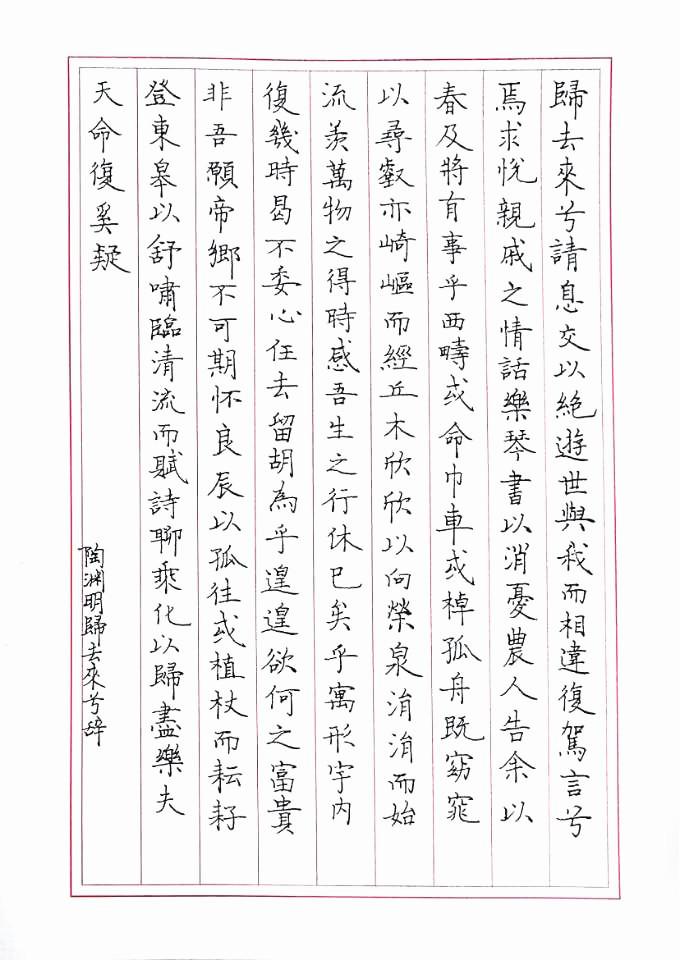 歸去來兮請息交以絕遊世與我而相違復駕言兮
焉求悅親戚之情話樂琴書以消憂農人告余以
春及將有事乎西疇或命巾車或棹孤舟既窈窕
以尋壑亦崎嶇而經丘木欣欣以向榮泉涓涓而始
流羨萬物之得時感吾生之行休已矣乎寓形宇內
復幾時曷不委心任去留胡為乎遑遑欲何之富貴
非吾願帝鄉不可期怀良辰以孤往或植杖而耘耔
登東皋以舒嘯臨清流而賦詩聊乘化以歸盡樂夫
天命復奚疑
陶淵明歸去來兮辞